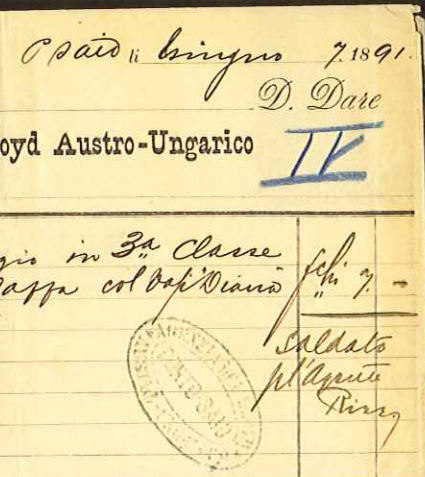 P Said li Giugno 7. 1891.
D. Dare
oyd Austro-Ungarico
IV
gio in 3a Classe
Jaffa col Vap. Diana fchi 7 -
Saldato
pl'Agente